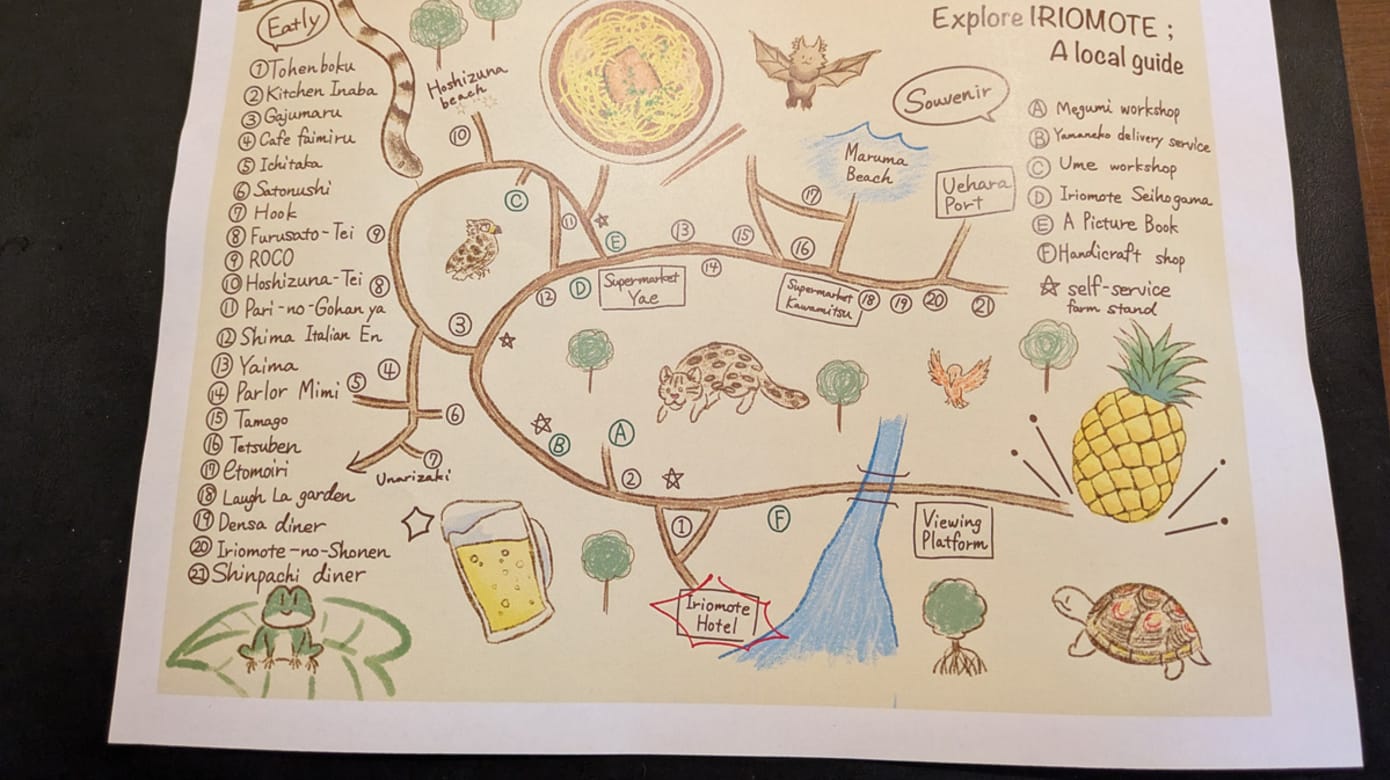 Explore IRIOMOTE ;
A local guide
Eatly
① Tohenboku
② Kitchen Inaba
③ Gajumaru
④ Cafe faimiru
⑤ Ichitaka
⑥ Satonushi
⑦ Hook
⑧ Furusato-Tei
⑨ ROCO
⑩ Hoshizuna-Tei
⑪ Pari-no-Gohan ya
⑫ Shima Italian En
⑬ Yaima
⑭ Parlor Mimi
⑮ Tamago
⑯ Tetsuben
⑰ etomoiri
⑱ Laugh La garden
⑲ Densa diner
⑳ Iriomote-no-Shonen
㉑ Shinpachi diner
Souvenir
Ⓐ Megumi workshop
Ⓑ Yamaneko delivery service
Ⓒ Ume workshop
Ⓓ Iriomote Seihogama
Ⓔ A Picture Book
Ⓕ Handicraft shop
☆ self-service
farm stand
Hoshizuna
beach
⑩
Ⓒ
⑪
☆
Ⓔ
⑬
⑮
⑰
Maruma
Beach
Uehara
Port
⑯
⑭
⑨
⑧
③
⑫
Ⓓ
Supermarket
Yae
Supermarket
Kawamitsu
⑱
⑲
⑳
㉑
☆
④
⑤
⑥
⑦
Unarizaki
☆
Ⓑ
Ⓐ
②
☆
①
Ⓕ
Viewing
Platform
Iriomote
Hotel